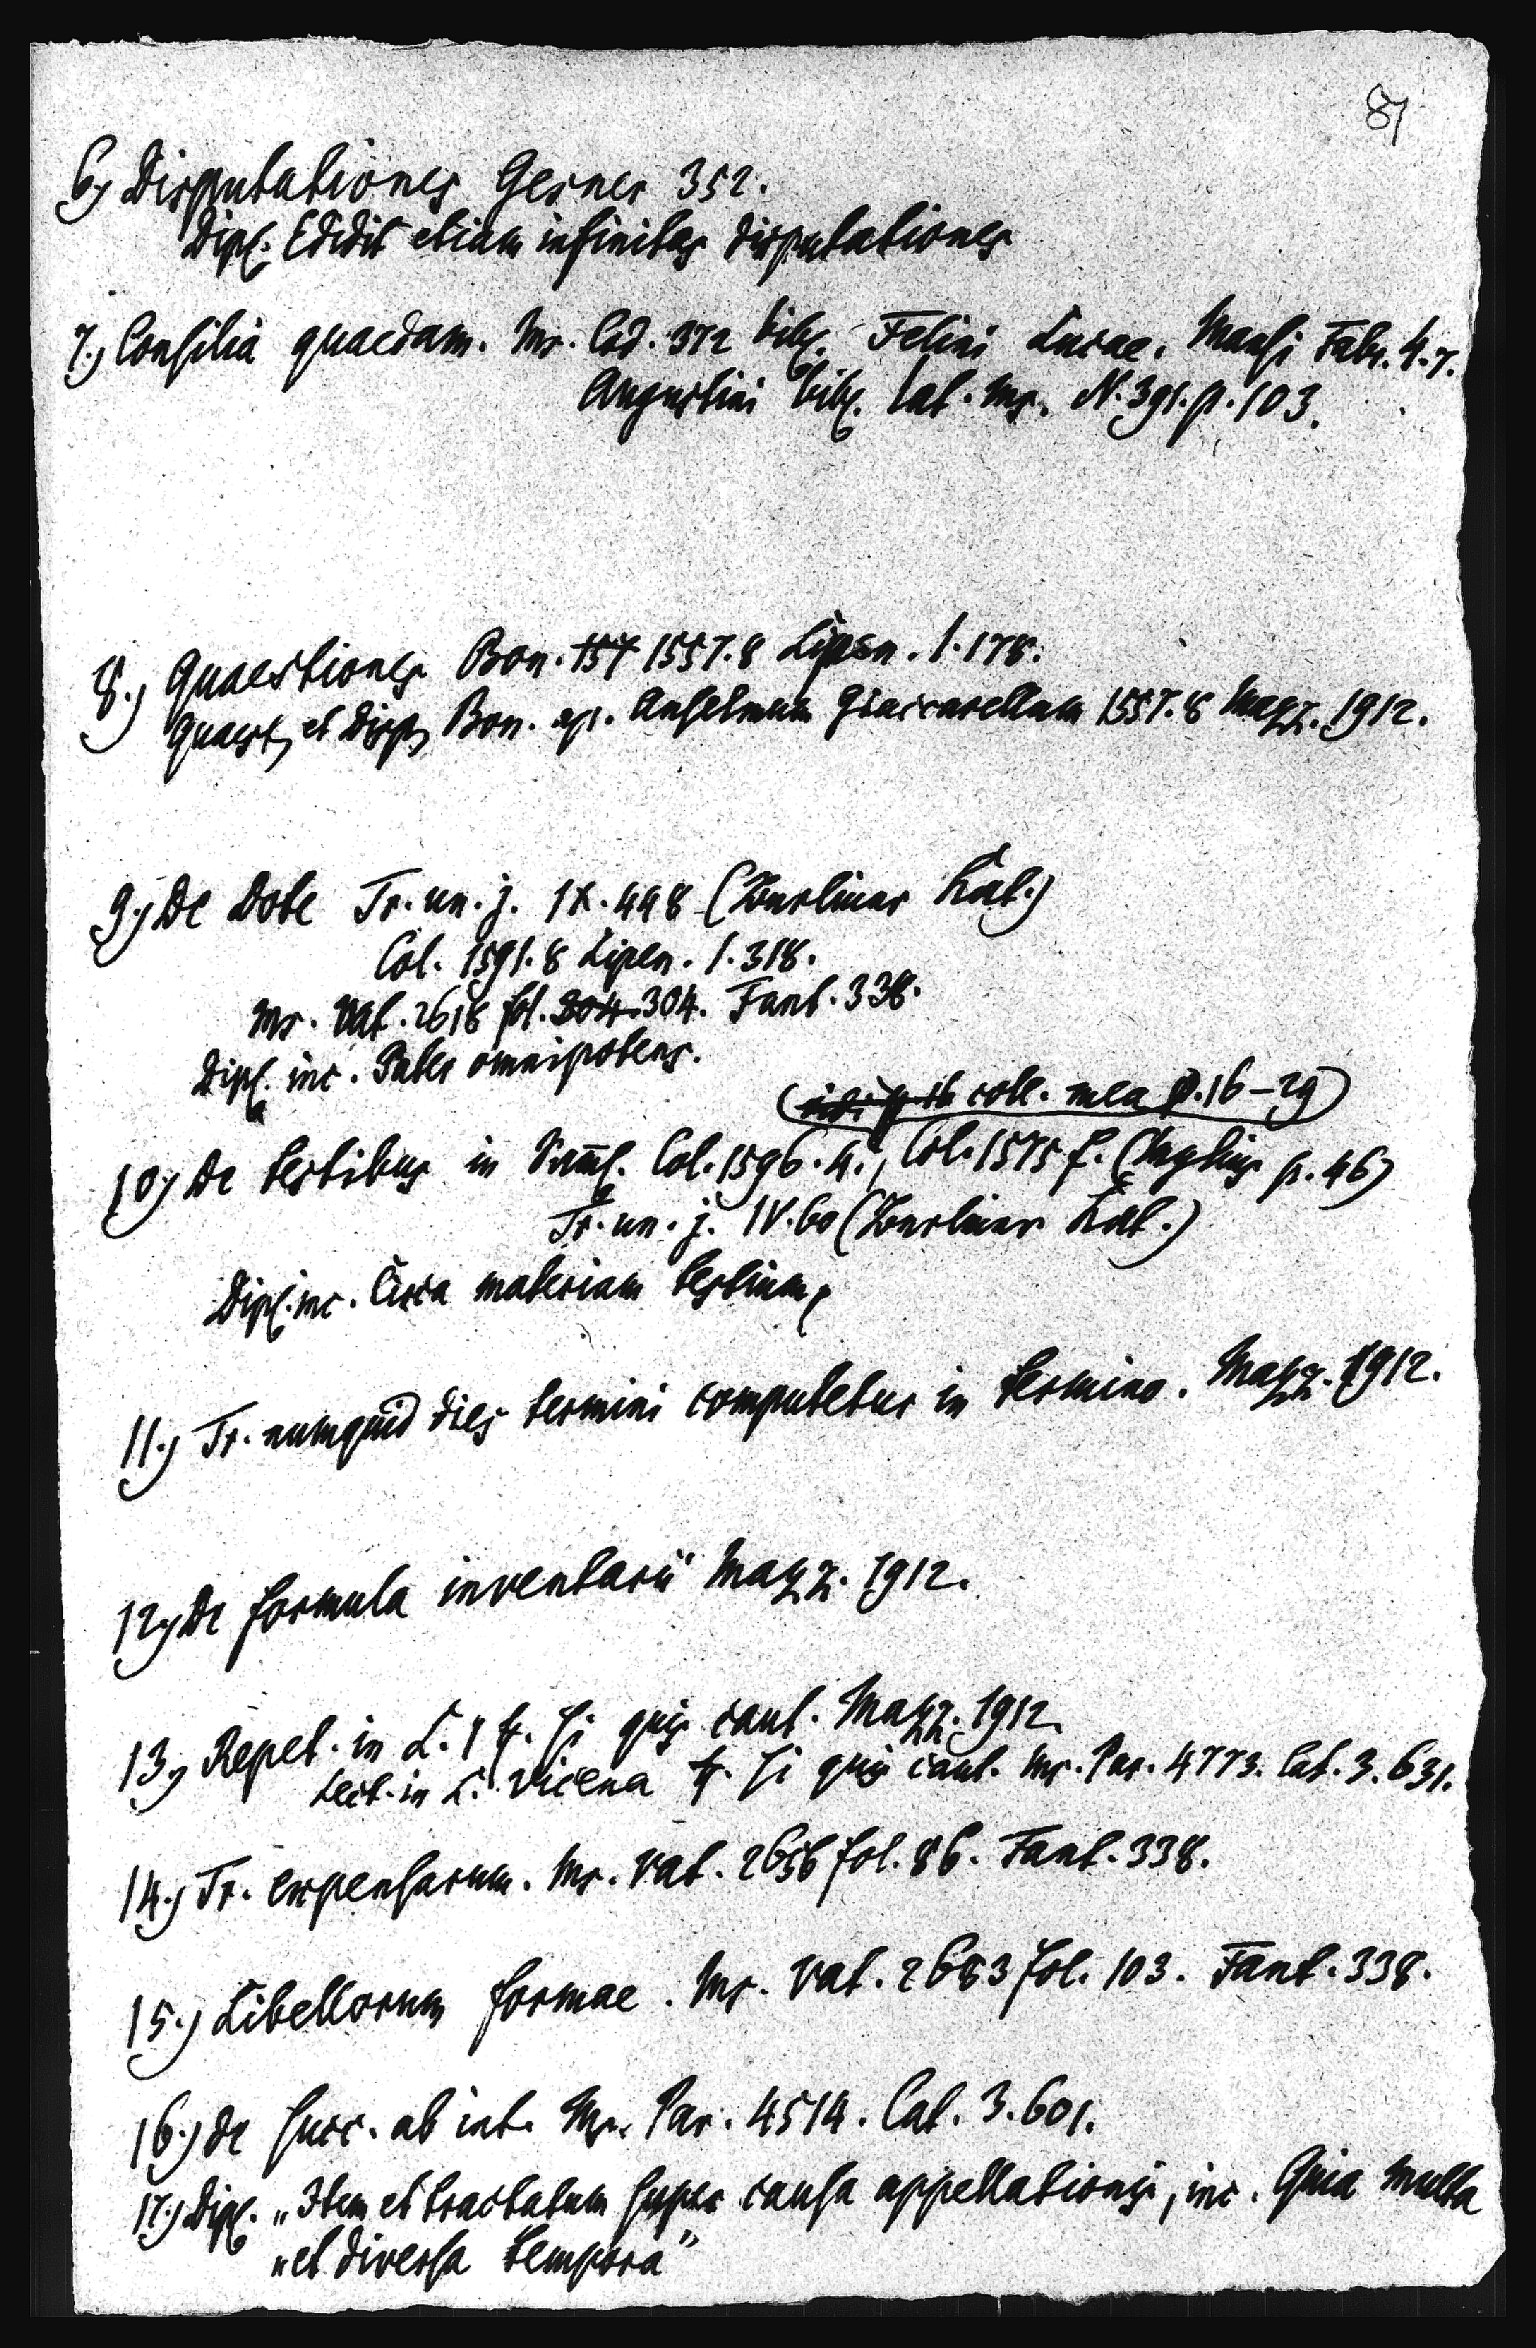 87
6.) Disputationes Gesner 352.
Dipl. Edidit etiam infinitas disputationes
7.) Consilia quaedam. Ms. Cod. 372 bibl. Felini Lucae. Mansi Fabr. 4.7.
Augustini bibl. lat. ms. N. 391. p. 103.
8.) Quaestiones Bon. 157 1557.8 Lipen. 1.178.
Quaest. et Disp. Bon. ap. Anselmum Giaccarellum 1557.8 Mazz. 1912.
9.) De Dote Tr. un. j. IX. 448 (Berliner Kat.)
Col. 1591.8 Lipen. 1.318.
Ms. Vat. 2618 fol. 304. 304. Fant. 338.
Dipl. inc. Pater omnipotens.
(coll. mea p. 16-29)
10.) De testibus in Samml. Col. 1596.4., Col. 1575 f. p. 46)
Tr. un. j. IV. 60 (Berliner Kat.)
Dipl. inc. Circa materiam testium,
11.) Tr. numquid dies termini computetur in termino. Mazz. 1912.
12.) De formula inventarii Mazz. 1912.
13.) Repet. in L. si quis caut. Mazz. 1912.
Lect. in L. Vicena ff. si quis caut. Ms. Par. 4773. Cat. 3. 631.
14.) Tr. expensarum. Ms. Vat. 2656 fol. 86. Fant. 338.
15.) Libellorum formae. Ms. Vat. 2683 fol. 103. Fant. 338.
16.) De succ. ab int. Ms. Par. 4514. Cat. 3. 601.
17.) Dipl. „Item et tractatum super causa appellationis, inc. Quia multa
„et diversa tempora"